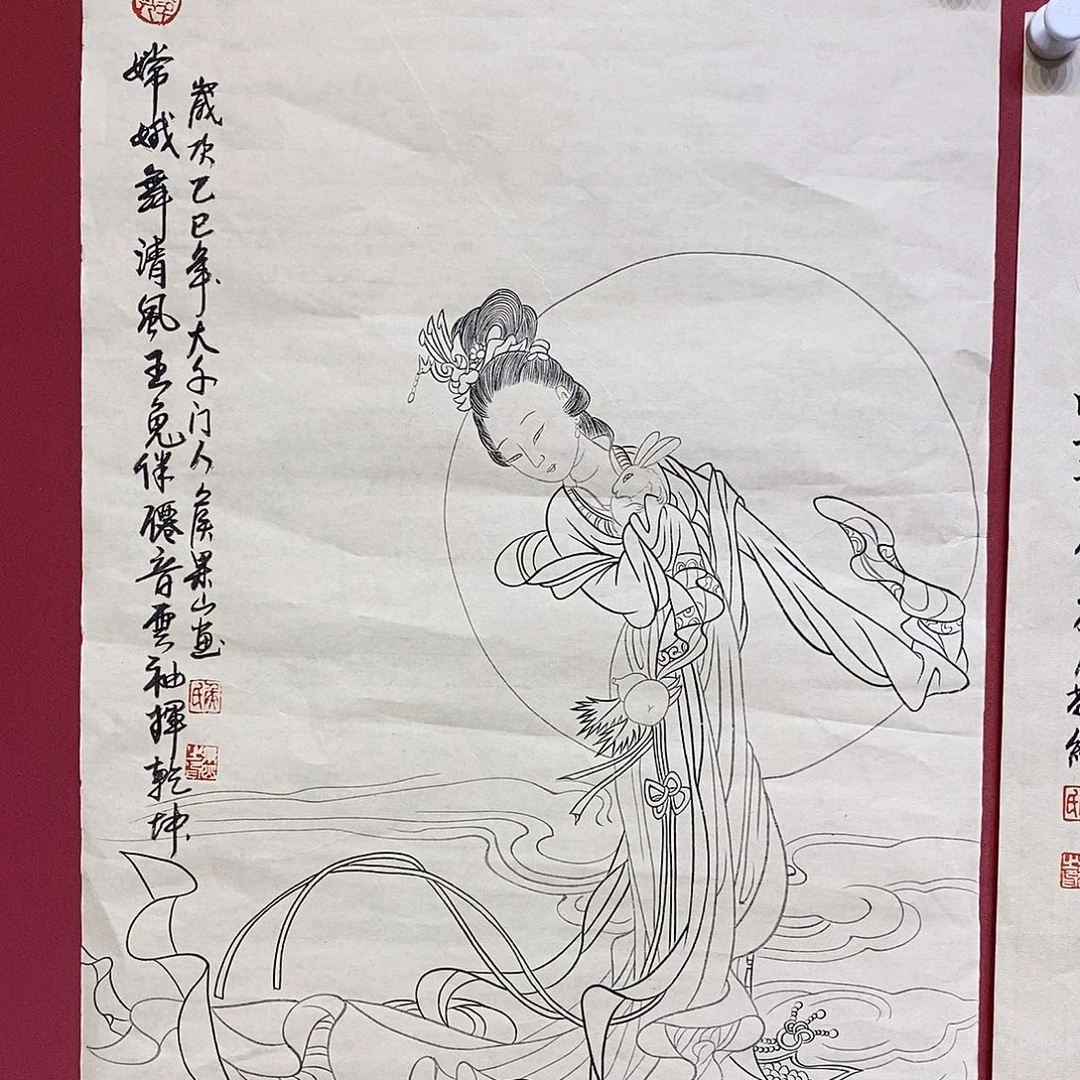 嫦娥舞清風玉兔伴僊音雲袖揮乾坤
歲次乙巳年大千门人侯果山画